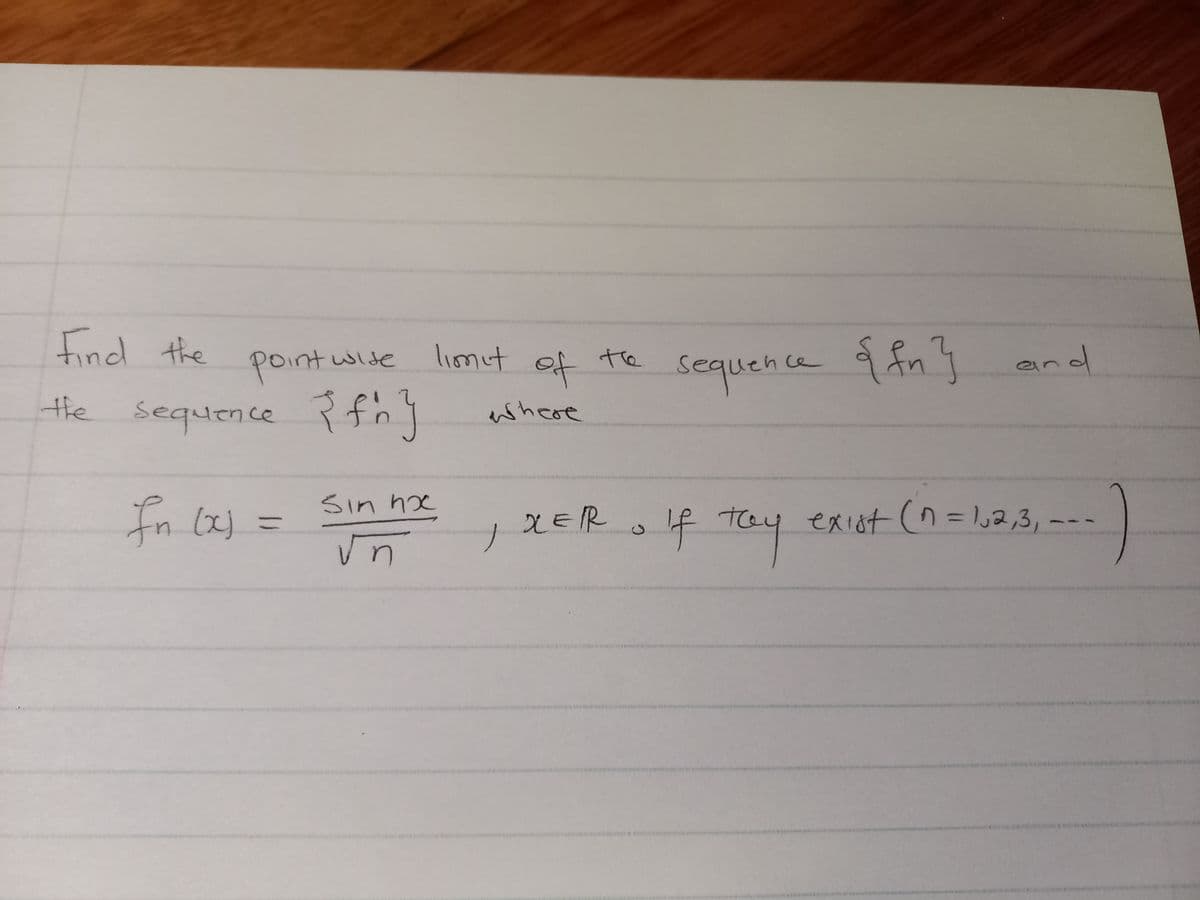 Find the pointwise limit of the sequence {fn} and
the sequence {f'n} where
fn (x) = sin nx / √n , x ∈ ℝ , If they exist (n = 1,2,3, ---)